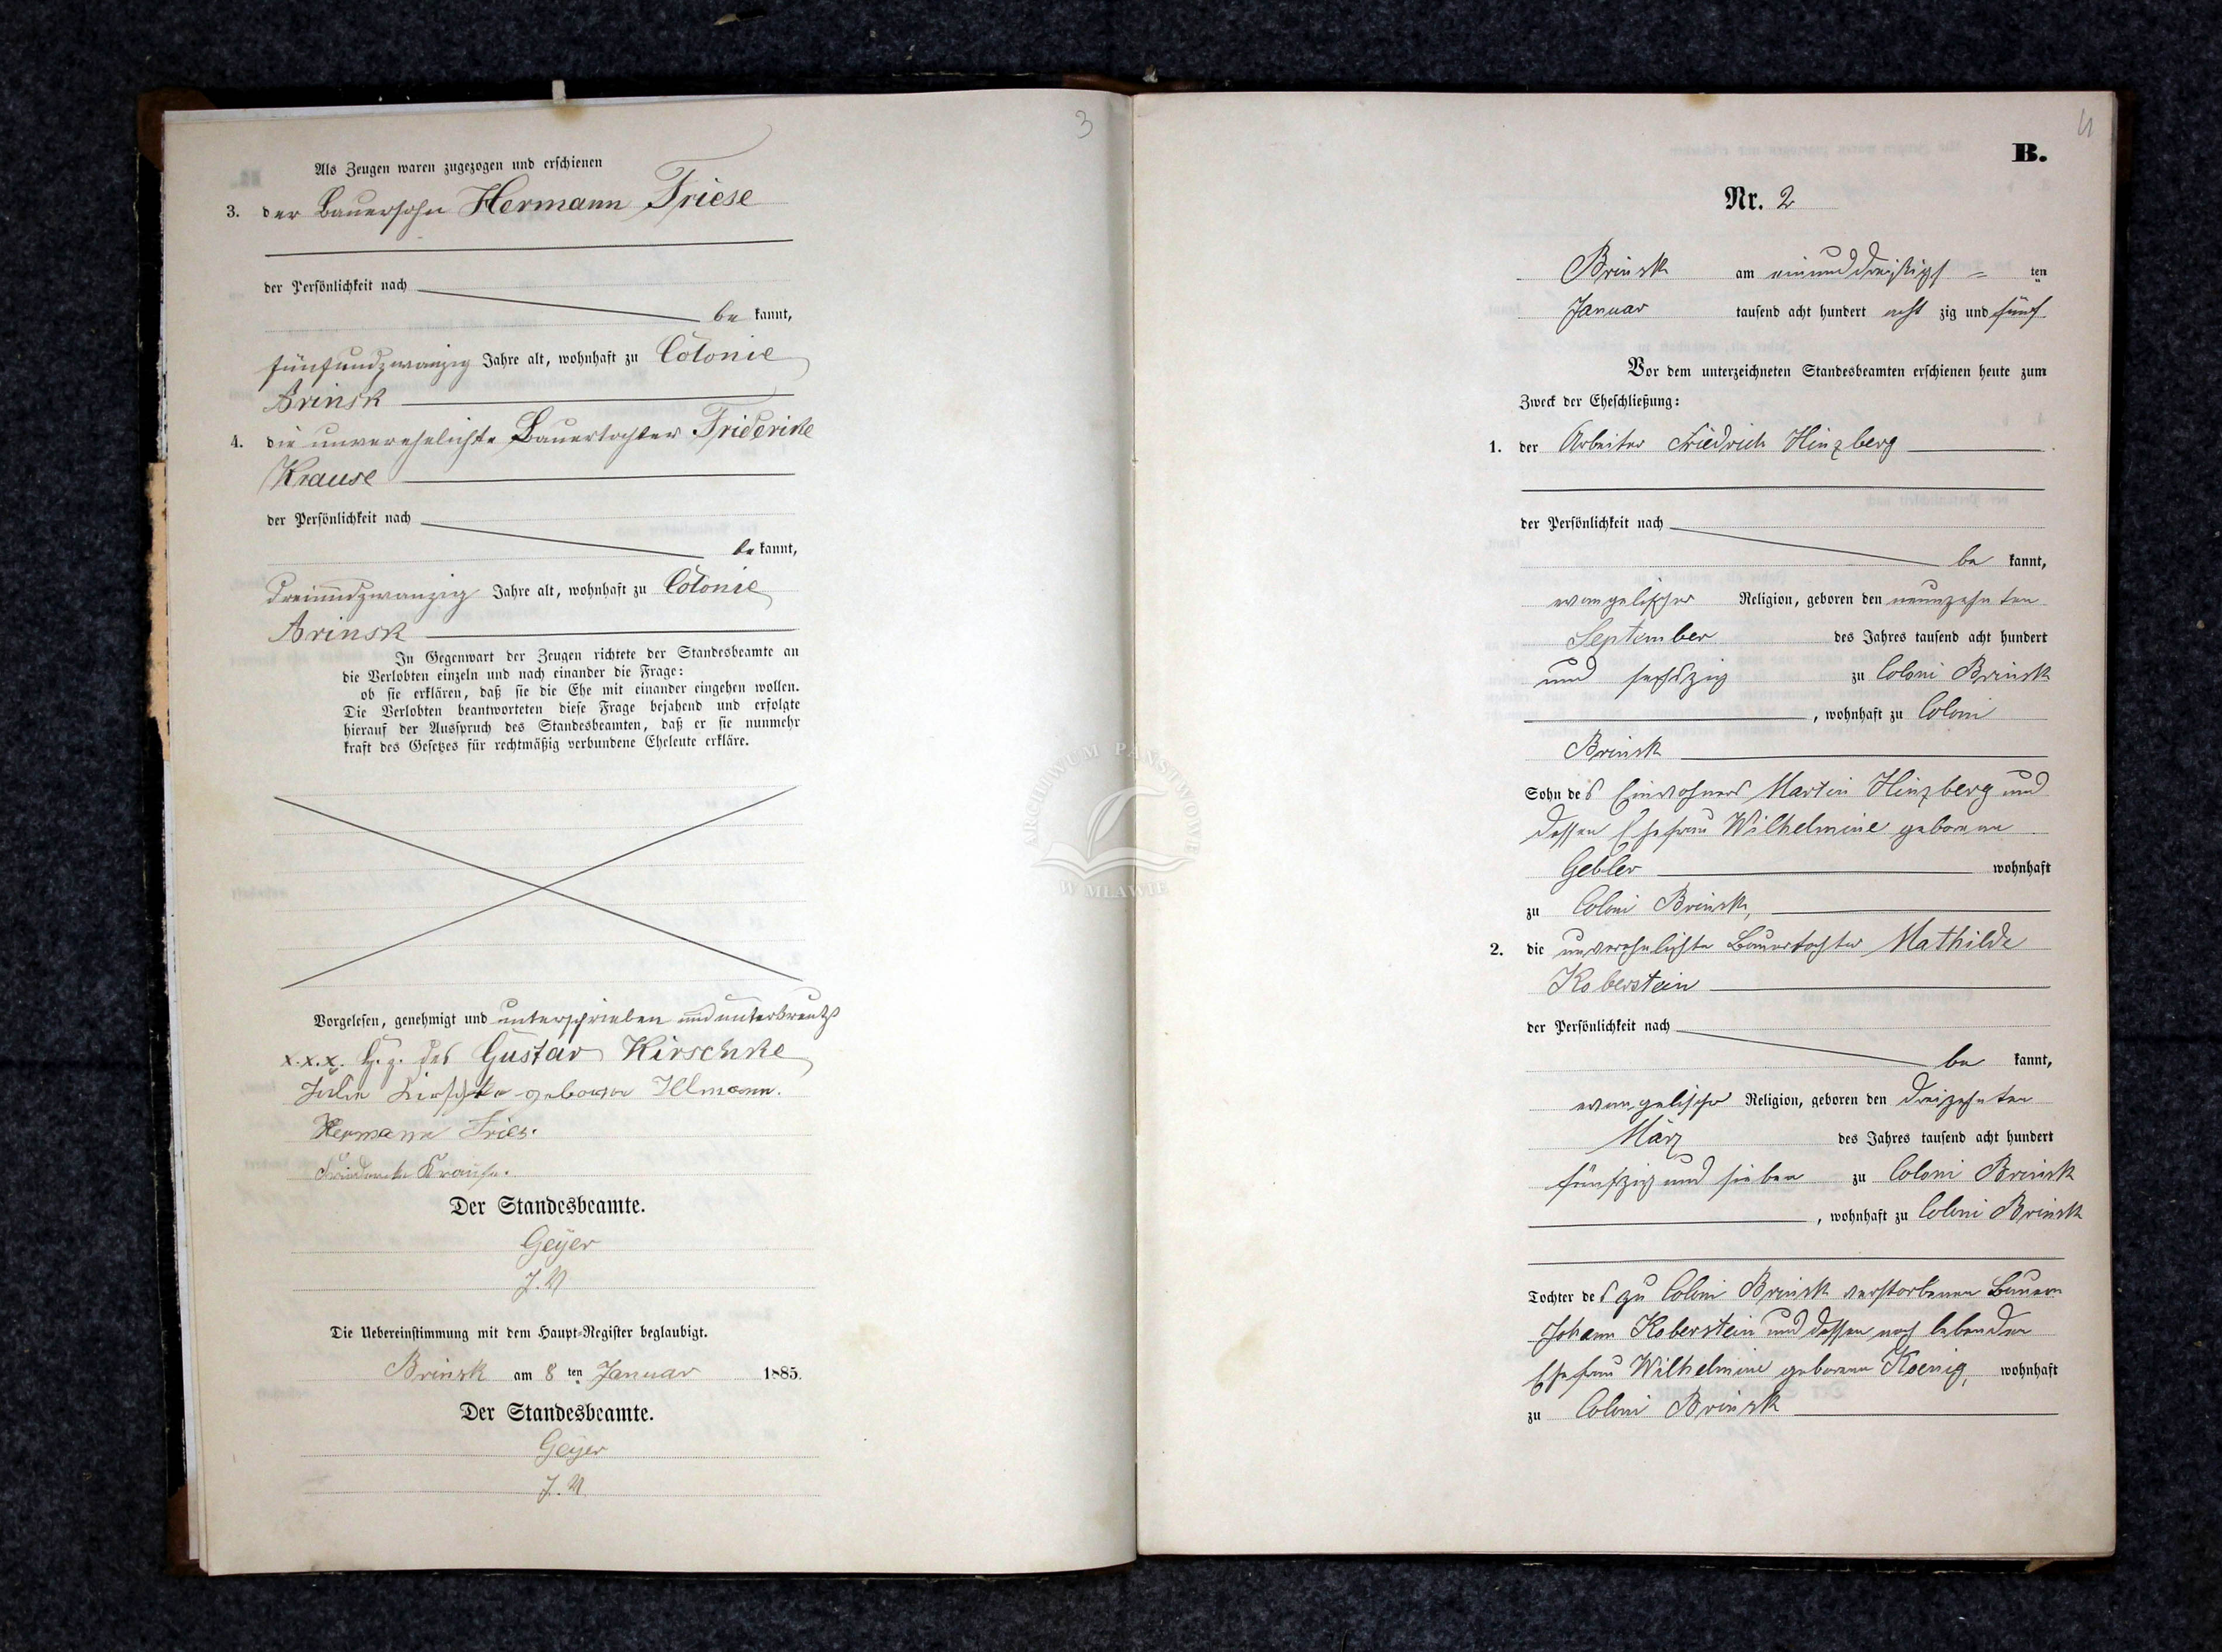 3
Als Zeugen waren zugezogen und erschienen
3. der Bauersohn Hermann Friese
der Persönlichkeit nach
be kannt,
fünfundzwanzig Jahre alt, wohnhaft zu Colonie
Brinsk
4. die unverehelichte Bauertochter Friderike
Krause
der Persönlichkeit nach
be kannt,
dreiundzwanzig Jahre alt, wohnhaft zu Colonie
Brinsk
In Gegenwart der Zeugen richtete der Standesbeamte an
die Verlobten einzeln und nach einander die Frage:
ob sie erklären, daß sie die Ehe mit einander eingehen wollen.
Die Verlobten beantworteten diese Frage bejahend und erfolgte
hierauf der Ausspruch des Standesbeamten, daß er sie nunmehr
kraft des Gesetzes für rechtmäßig verbundene Eheleute erkläre.
Vorgelesen, genehmigt und unterschrieben und unterkreutzt
x.x.x. H. z. des Gustav Kirschke
Kirschke geborne Ulmann.
Hermann Fries.
Friederike Krause.
Der Standesbeamte.
Geÿer
J.V
Die Uebereinstimmung mit dem Haupt-Register beglaubigt.
Brinsk am 8 ten Januar 1885.
Der Standesbeamte.
Geÿer
J.V.
4
B.
Nr. 2
Brinsk am einunddreißigs = ten
Januar tausend acht hundert acht zig und fünf
Vor dem unterzeichneten Standesbeamten erschienen heute zum
Zweck der Eheschließung:
1. der Arbeiter Friedrich Hinzberg
der Persönlichkeit nach
be kannt,
evangelischer Religion, geboren den neunzehn ten
September des Jahres tausend acht hundert
und sechszig zu Coloni Brinsk
, wohnhaft zu Coloni
Brinsk
Sohn des Einwohners Martin Hinzberg und
dessen Ehefrau Wilhelmine geborene
Gebler wohnhaft
zu Coloni Brinsk,
2. die unverehelichte Bauertochter Mathilde
Koberstein
der Persönlichkeit nach
be kannt,
evangelischer Religion, geboren den dreizehn ten
März des Jahres tausend acht hundert
fünfzig und sieben zu Coloni Brinsk
, wohnhaft zu Coloni Brinsk
Tochter des zu Coloni Brinsk verstorbenen Bauern
Johann Koberstein und dessen noch lebenden
Ehefrau Wilhelmine geborene Koenig, wohnhaft
zu Coloni Brinsk
ARCHIWUM PAŃSTWOWE
W MŁAWIE